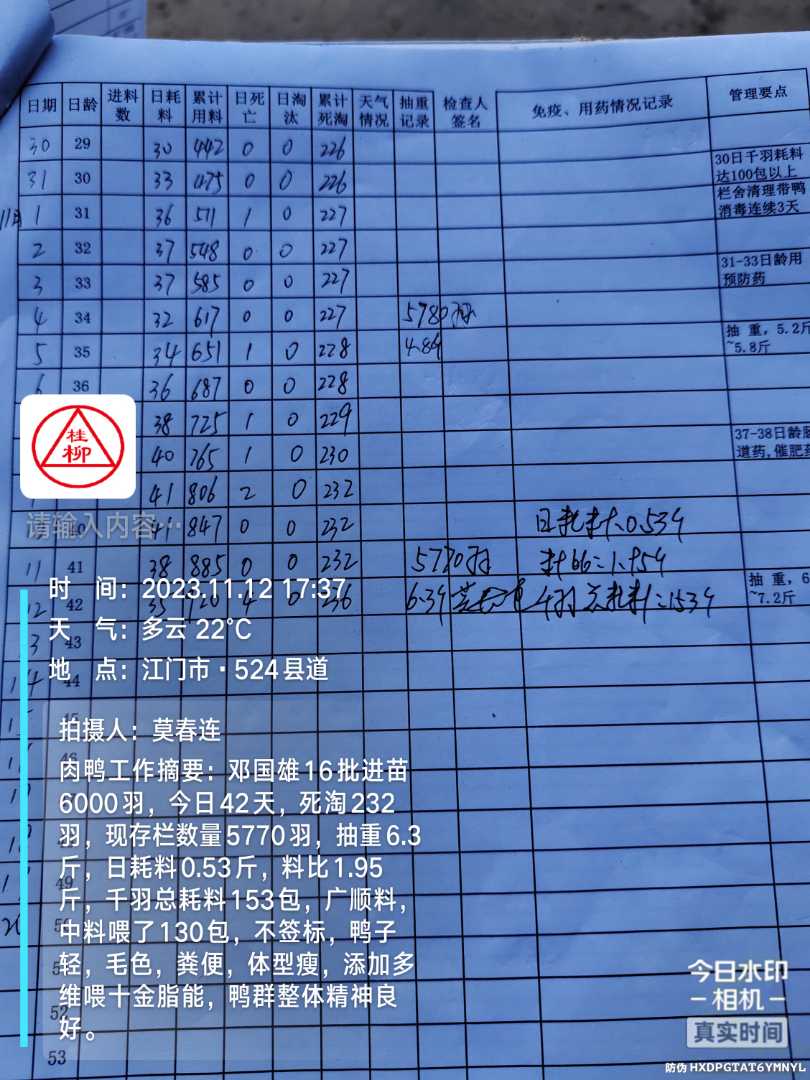 日期 日龄 进料数 日耗料 累计用料 日死亡 日淘汰 累计死淘 天气情况 抽重记录 检查人签名 免疫、用药情况记录 管理要点
30 29 30 442 0 0 226
31 30 33 475 0 0 226 30日千羽耗料达100包以上
11月1 31 36 511 1 0 227 栏舍清理带鸭消毒连续3天
2 32 37 548 0 0 227
3 33 37 585 0 0 227 31-33日龄用预防药
4 34 32 617 0 0 227 5780羽
5 35 34 651 1 0 228 4.8斤 抽 重,5.2斤~5.8斤
6 36 36 687 0 0 228
38 725 1 0 229
40 765 1 0 230 37-38日龄肠道药,催肥药
41 806 2 0 232
桂柳
请输入内容...
40 41 847 0 0 232 日耗料0.53斤
11 41 38 885 0 0 232 5770羽 料比=1.95斤
12 42 35 920 4 0 236 6.3斤 千羽总耗料=153斤 抽 重,6
~7.2斤
时 间:2023.11.12 17:37
天 气:多云 22°C
地 点:江门市·524县道
3 43
14 44
拍摄人:莫春连
肉鸭工作摘要:邓国雄16批进苗
6000羽,今日42天,死淘232
羽,现存栏数量5770羽,抽重6.3
斤,日耗料0.53斤,料比1.95
斤,千羽总耗料153包,广顺料,
中料喂了130包,不签标,鸭子
轻,毛色,粪便,体型瘦,添加多
维喂十金脂能,鸭群整体精神良
好。
49
52
53
今日水印
相机
真实时间
防伪 HXDPGTAT6YMNYL